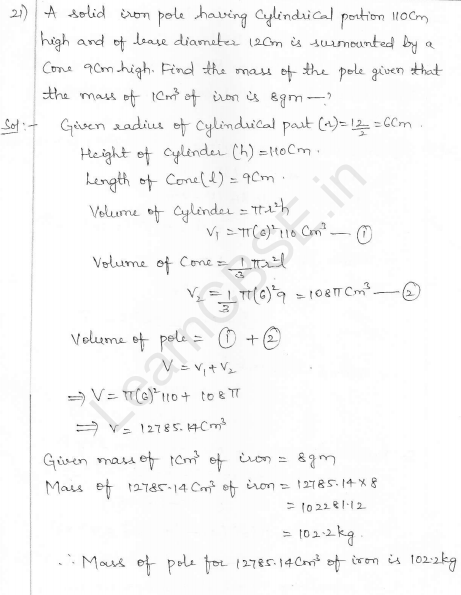 21) A solid iron pole having Cylindrical portion 110Cm
high and of base diameter 12Cm is surmounted by a
Cone 9Cm high. Find the mass of the pole given that
the mass of 1Cm³ of iron is 8gm —?
Sol:- Given radius of Cylindrical part (r) = 12/2 = 6Cm.
Height of Cylinder (h) = 110Cm.
Length of Cone (l) = 9Cm.
Volume of Cylinder = πr²h
V₁ = π(6)² 110 Cm³ — ①
Volume of Cone = 1/3 πr²l
V₂ = 1/3 π(6)² 9 = 108π Cm³ — ②
Volume of pole = ① + ②
V = V₁ + V₂
⇒ V = π(6)² 110 + 108π
⇒ V = 12785.14Cm³
Given mass of 1Cm³ of iron = 8gm
Mass of 12785.14Cm³ of iron = 12785.14 × 8
= 102281.12
= 102.2kg.
∴ Mass of pole for 12785.14Cm³ of iron is 102.2kg
LearnCBSE.in